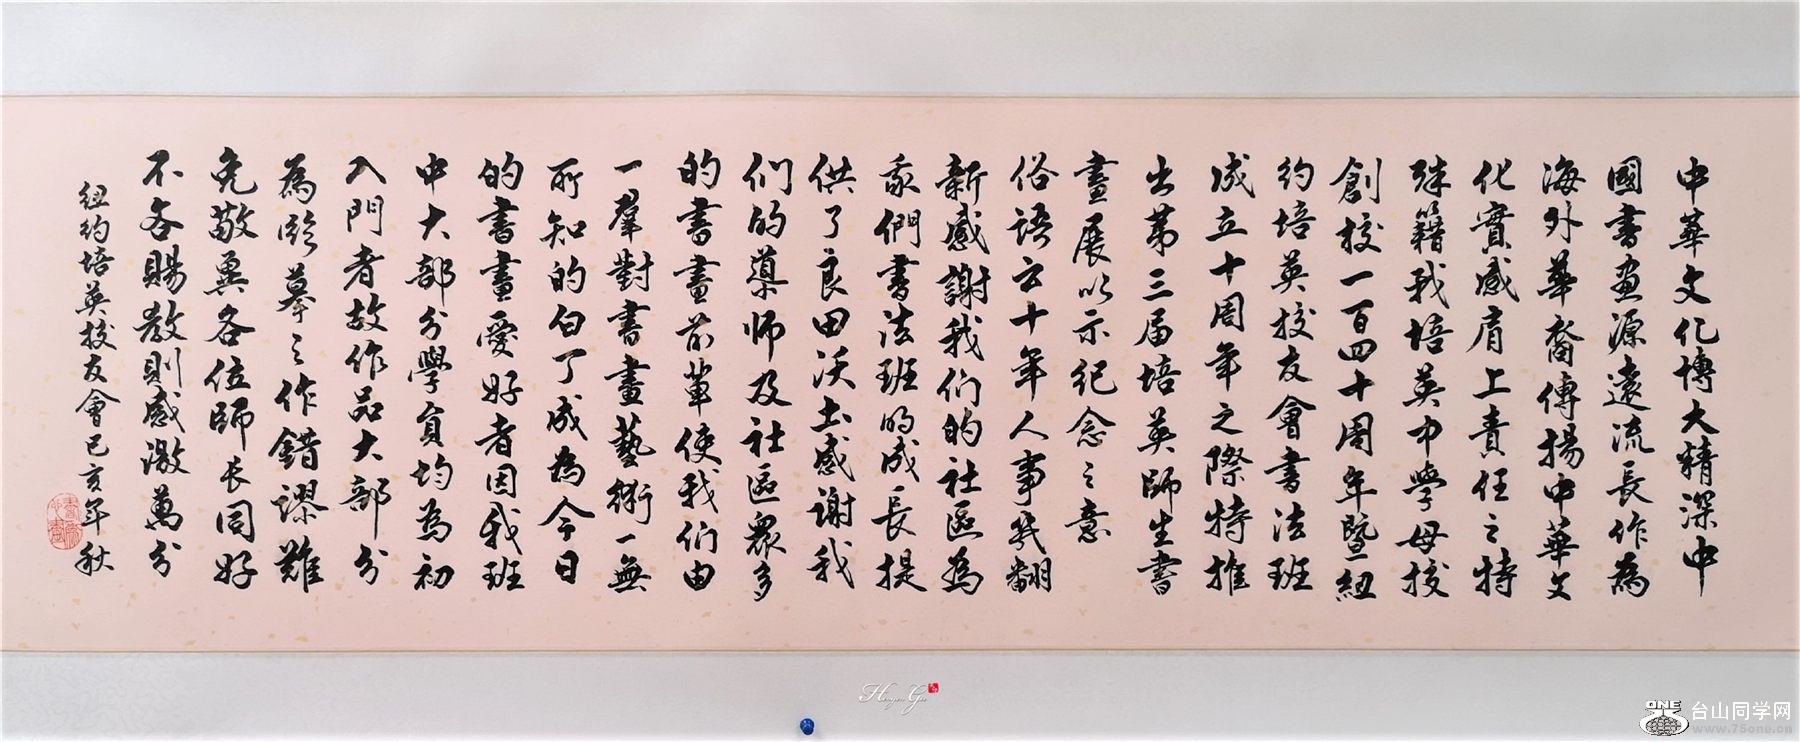 中華文化博大精深中
國書画源遠流長作為
海外華裔傳揚中華文
化實感肩上責任之特
殊籍我培英中學母校
創校一百四十周年暨紐
約培英校友會書法班
成立十周年之際特推
出第三届培英師生書
畫展以示紀念之意
俗语云十年人事几翻
新感謝我们的社區為
我們書法班的成長提
供了良田沃土感謝我
们的導师及社區衆多
的書畫前輩使我们由
一羣對書畫藝術一無
所知的白丁成為今日
的書畫愛好者因我班
中大部分學員均為初
入門者故作品大部分
為臨摹之作錯謬難
免敬異各位師长同好
不吝賜教則感激萬分
紐約培英校友會己亥年秋
HongenGee
ONE
台山同学网
www.75one.cn